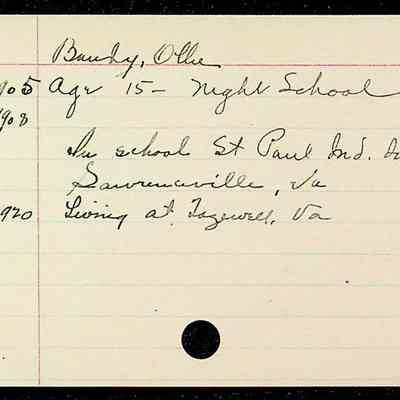 Bandy, Ollie
905 Age 15- Night School
1908
In school St Paul Ind.
Lawrenceville, Va
920 Living at Tazewell, Va